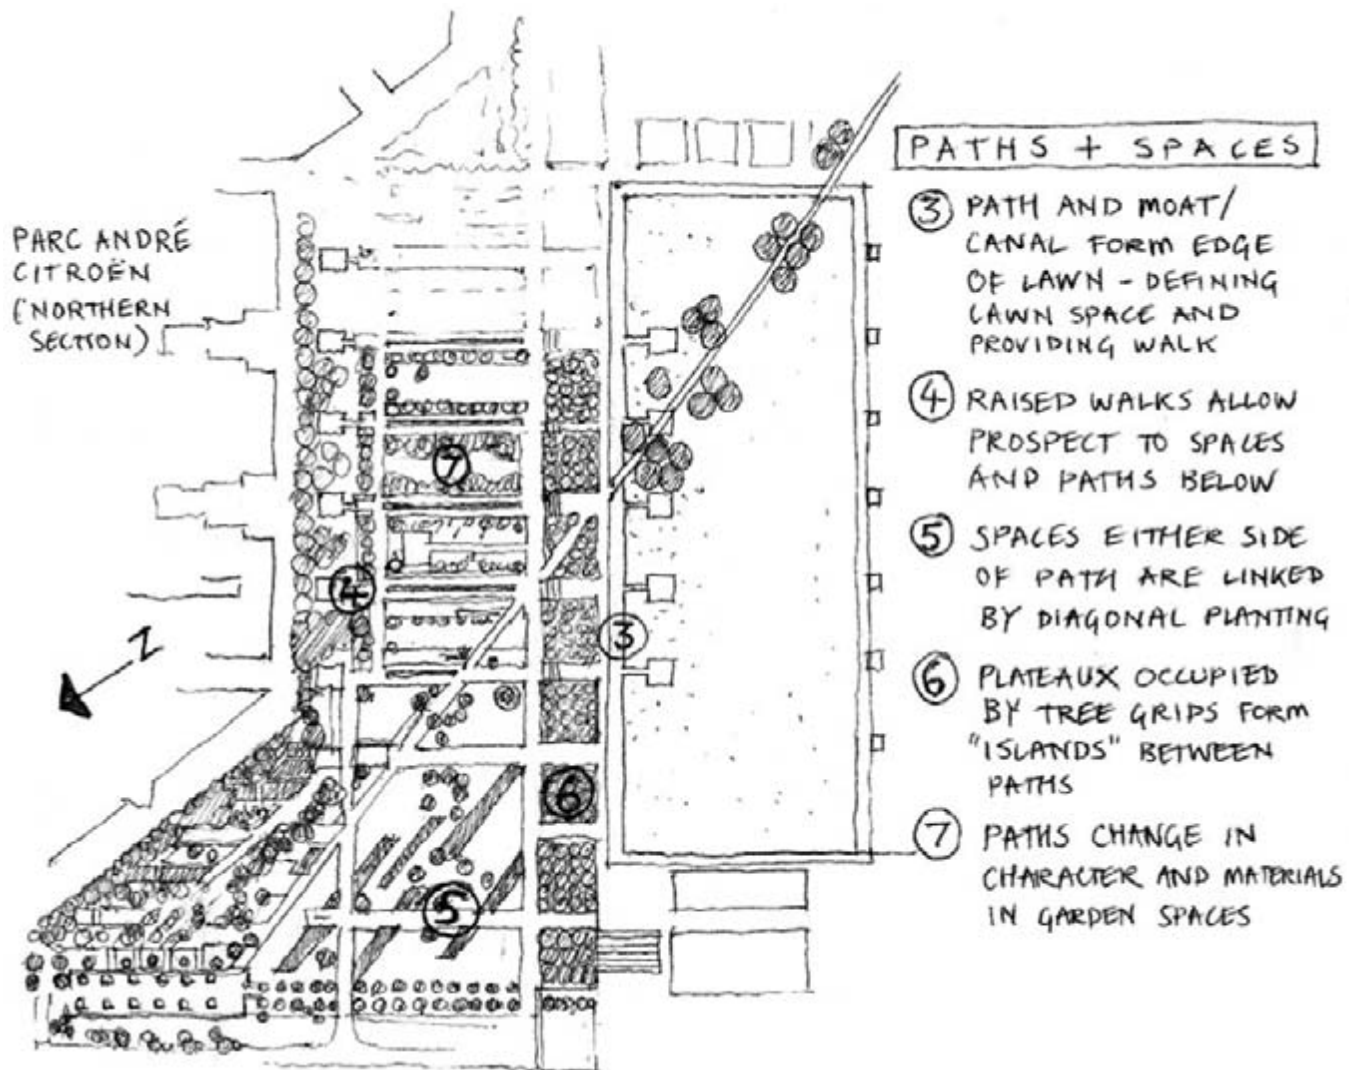 PARC ANDRÉ
CITROËN
(NORTHERN
SECTION)
N
7
4
3
6
5
PATHS + SPACES
3 PATH AND MOAT/
CANAL FORM EDGE
OF LAWN - DEFINING
LAWN SPACE AND
PROVIDING WALK
4 RAISED WALKS ALLOW
PROSPECT TO SPACES
AND PATHS BELOW
5 SPACES EITHER SIDE
OF PATH ARE LINKED
BY DIAGONAL PLANTING
6 PLATEAUX OCCUPIED
BY TREE GRIDS FORM
"ISLANDS" BETWEEN
PATHS
7 PATHS CHANGE IN
CHARACTER AND MATERIALS
IN GARDEN SPACES